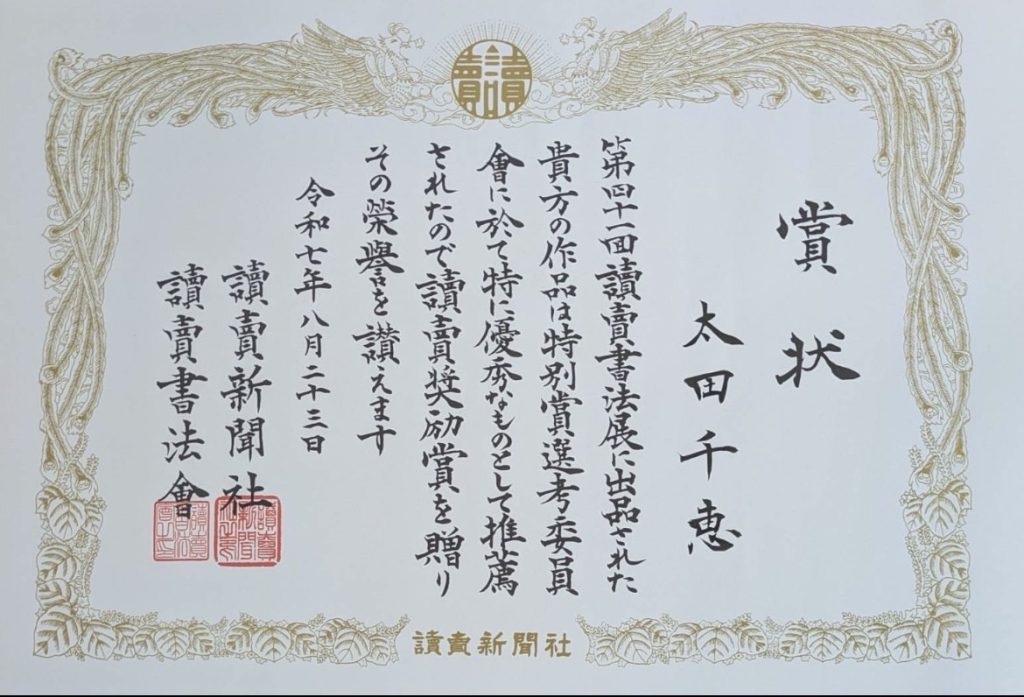 賞状
太田千恵
第四十一回讀賣書法展に出品された
貴方の作品は特別賞選考委員
會に於て特に優秀なものとして推薦
されたので讀賣奨励賞を贈り
その榮譽を讃えます
令和七年八月二十三日
讀賣新聞社
讀賣書法會
讀賣新聞社